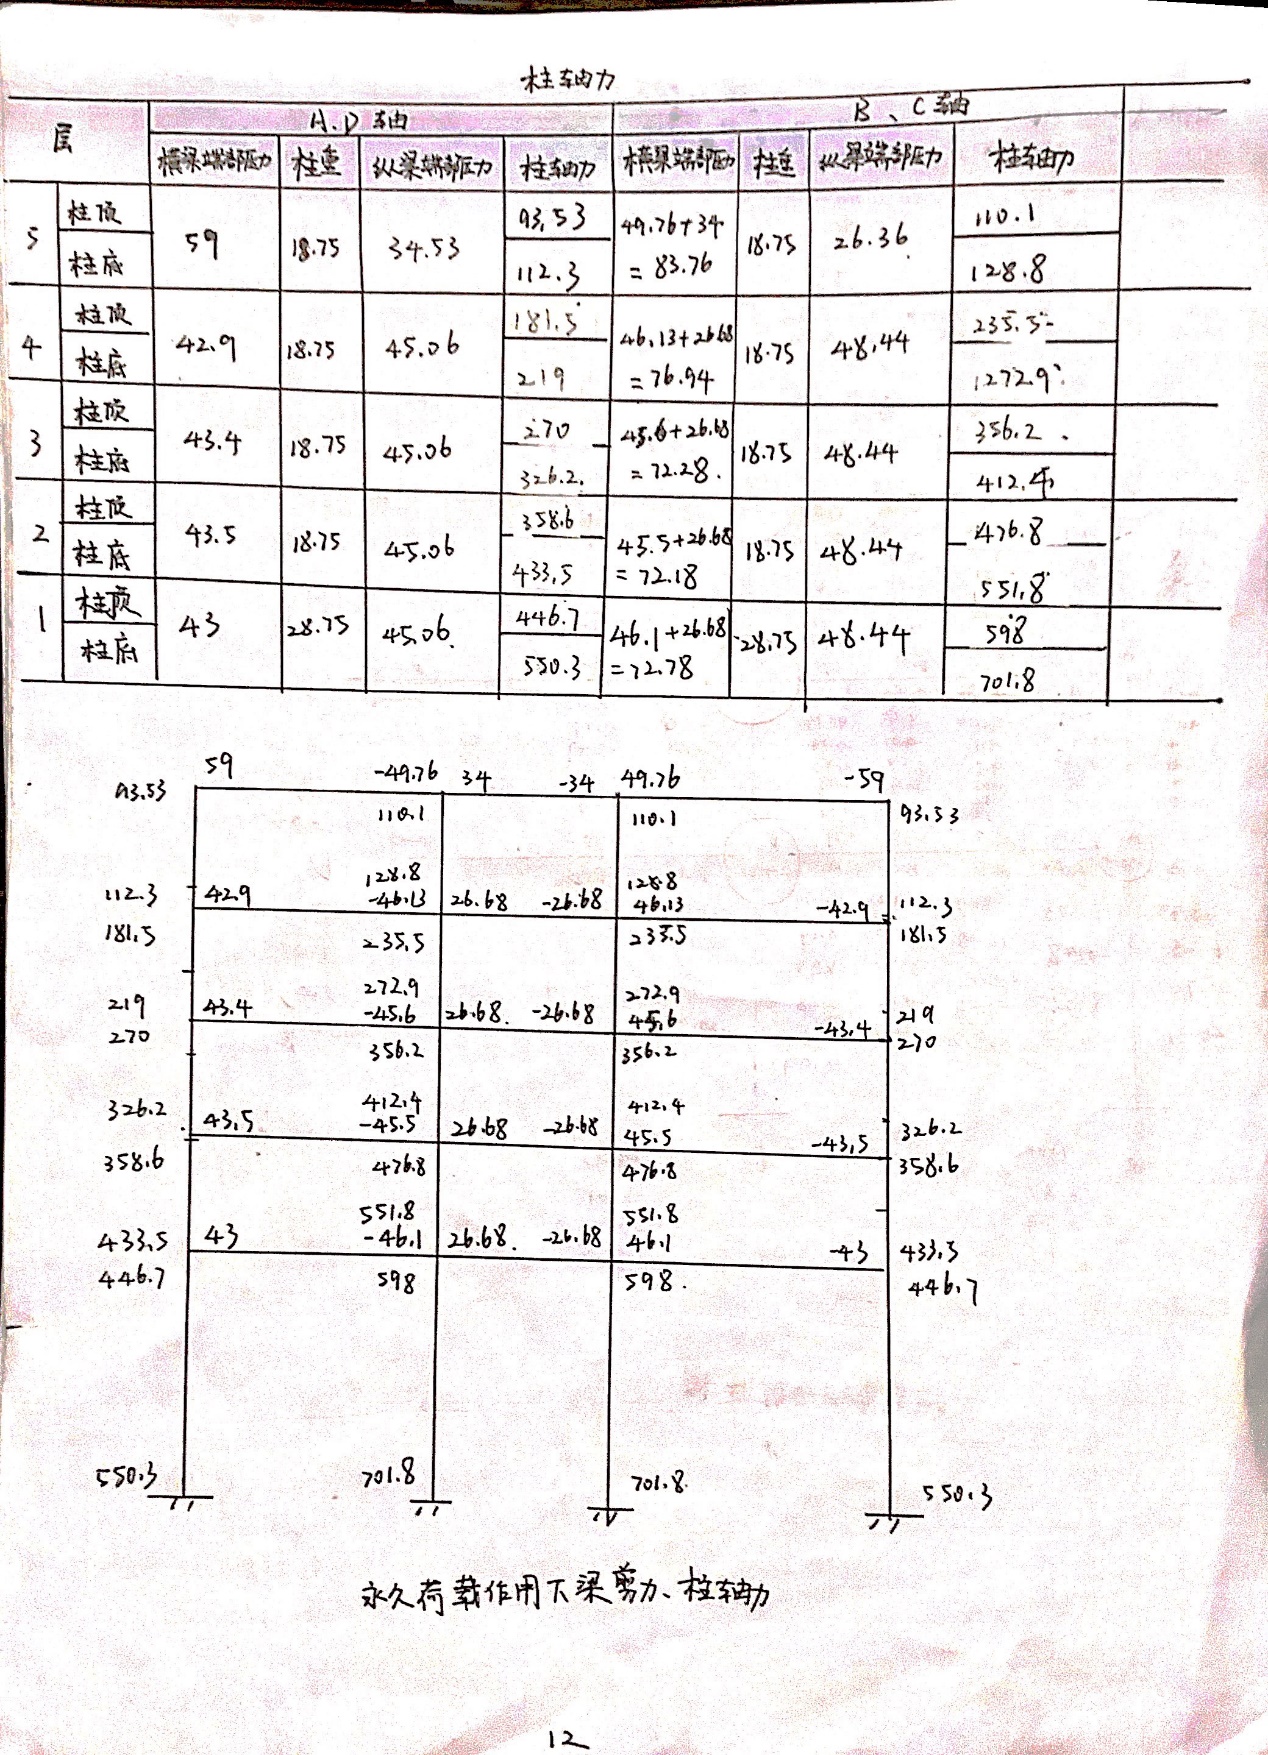 柱轴力
层 A、D轴 B、C轴
横梁端部压力 柱重 纵梁端部压力 柱轴力 横梁端部压力 柱重 纵梁端部压力 柱轴力
5 柱顶 59 18.75 34.53 93.53 49.76+34 18.75 26.36 110.1
柱底 112.3 =83.76 128.8
4 柱顶 42.9 18.75 45.06 181.5 46.13+26.68 18.75 48.44 235.5
柱底 219 =76.94 272.9
3 柱顶 43.4 18.75 45.06 270 45.6+26.68 18.75 48.44 356.2
柱底 326.2 =72.28 412.4
2 柱顶 43.5 18.75 45.06 358.6 45.5+26.68 18.75 48.44 476.8
柱底 433.5 =72.18 551.8
1 柱顶 43 28.75 45.06 446.7 46.1+26.68 28.75 48.44 598
柱底 550.3 =72.78 701.8
59 -49.76 34 -34 49.76 -59
93.53 110.1 110.1 93.53
128.8 128.8
112.3 42.9 -46.13 26.68 -26.68 46.13 -42.9 112.3
181.5 235.5 235.5 181.5
272.9 272.9
219 43.4 -45.6 26.68 -26.68 45.6 -43.4 219
270 356.2 356.2 270
412.4 412.4
326.2 43.5 -45.5 26.68 -26.68 45.5 -43.5 326.2
358.6 476.8 476.8 358.6
551.8 551.8
433.5 43 -46.1 26.68 -26.68 46.1 -43 433.5
446.7 598 598 446.7
550.3 701.8 701.8 550.3
永久荷载作用下梁剪力、柱轴力
12